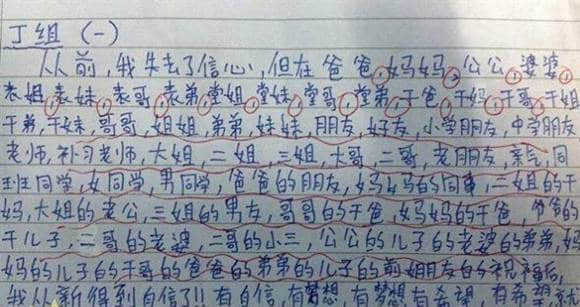 丁组 (一)
从前,我失去了信心,但在爸爸,妈妈,公公,婆婆,
表姐,表妹,表哥,表弟,堂姐,堂妹,堂哥,堂弟,干爸,干妈,干哥,干姐
干弟,干妹,哥哥,姐姐,弟弟,妹妹,朋友,好友,小学朋友,中学朋友
老师,补习老师,大姐,二姐,三姐,大哥,二哥,老朋友,亲气,同
班同学,女同学,男同学,爸爸的朋友,妈妈的同事,二姐的干
妈,大姐的老公,三姐的男友,哥哥的干爸,妈妈的干爸,爷爷的
干儿子,二哥的老婆,二哥的小三,公公的儿子的老婆的弟弟,妈
妈的儿子的干哥的爸爸的弟弟的儿子的前女朋友的祝福后,
我从新得到自信了!!有自信,有梦想,有梦想有希望,有希望